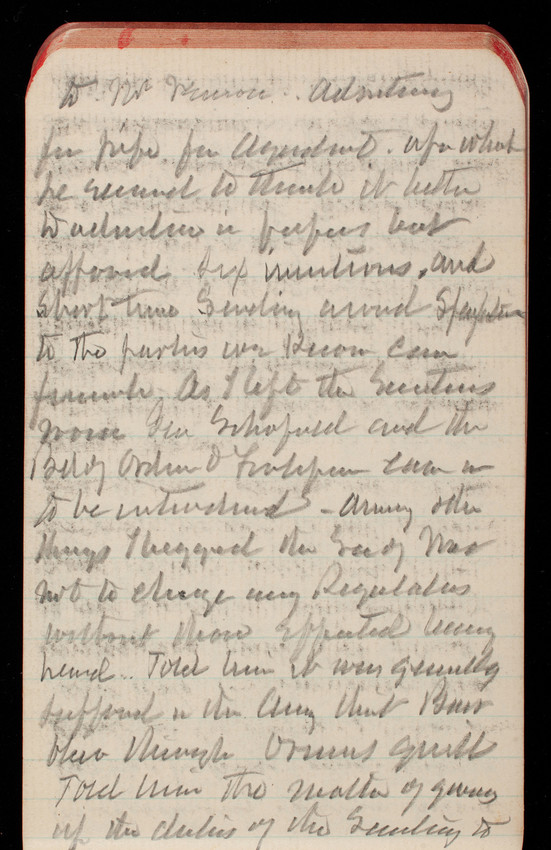 to Mr Vernon. Advertising
for pipe for Aqueduct. upon what
he seemed to think it better
to advertise in papers but
afford six invitations, and
short time sending around
to the parties we know can
furnish. As I left the Secretary's
room Gen Schofield and the
Bd of Ordn & Fortification came in
to be introduced - Among other
things I begged the Secy of War
not to change any Regulations
without those affected being
heard. Told him it was generally
in the Army that
through quill
Told him the matter of giving
up the duties of the Secretary to